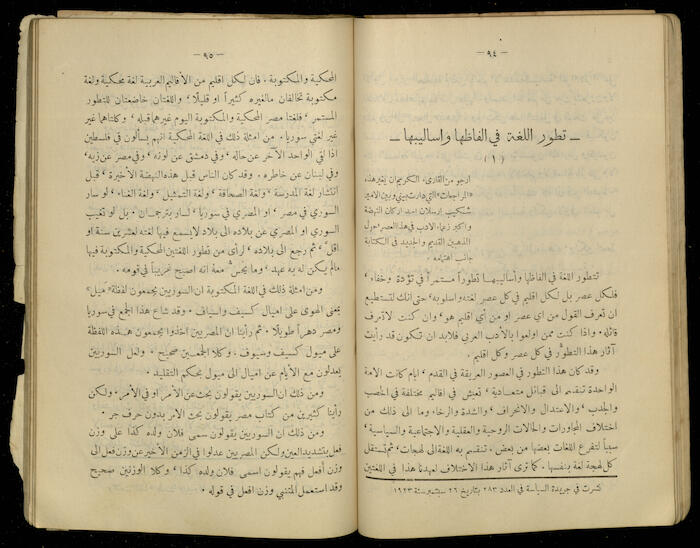 — ٩٤ —
— تطور اللغة في الفاظها واساليبها —
(١)
ارجو من القارىء الكريم ان يقرأ هذه
المراجعات التي دارت بيني وبين الامير
شكيب ارسلان احد اركان النهضة
واكبر زعماء الادب في هذا العصر حول
المذهبين القديم والجديد في الكتابة
جانب اهتمامه .
تتطور اللغة في الفاظها واساليبها تطوراً مستمراً في تؤدة وخفاء ،
فلكل عصر بل لكل اقليم في كل عصر لغته واسلوبه ، حتى انك لتستطيع
ان تعرف القول من اي عصر او من أي اقليم هو ، وان كنت لا تعرف
قائله . واذا كنت ممن اولعوا بالأدب العربي فلابد ان تكون قد رأيت
آثار هذا التطور في كل عصر وكل اقليم .
وقد كان هذا التطور في العصور العريقة في القدم ، ايام كانت الامة
الواحدة تنقسم الى قبائل متعادية ، تعيش في اقاليم مختلفة في الخصب
والجدب ، والاعتدال والانحراف ، والشدة والرخاء وما الى ذلك من
اختلاف المجاورات والحالات الروحية والعقلية والاجتماعية والسياسية ،
سبباً لتفرع اللغات بعضها من بعض ، تنقسم به اللغة الى لهجات ، ثم تستقل
كل لهجة لغة بنفسها . كما ترى آثار هذا الاختلاف لعهدنا هذا في اللغتين
نشرت في جريدة السياسة في العدد ٢٨٣ بتاريخ ٢٦ سبتمبر سنة ١٩٢٣
— ٩٥ —
المحكية والمكتوبة . فان لكل اقليم من الأقاليم العربية لغة محكية ولغة
مكتوبة تخالفان ما لغيره كثيراً او قليلاً ، واللغتان خاضعتان للتطور
المستمر ، فلغتا مصر المحكية والمكتوبة اليوم غيرهما قبله ، وكلتاهما غير
غير لغتي سوريا . من امثلة ذلك في اللغة المحكية انهم يسألون في فلسطين
اذا لقي الواحد الآخر عن حاله ، وفي دمشق عن لونه ، وفي مصر عن زيه ،
وفي لبنان عن خاطره . وقد كان الناس قبل هذه النهضة الأخيرة ، قبل
انتشار لغة المدرسة ، ولغة الصحافة ، ولغة التمثيل ، ولغة الغناء ، لو سار
السوري في مصر ، او المصري في سوريا ، لسار بترجمان . بل لو تغيب
السوري او المصري عن بلاده الى بلاد لا يسمع فيها لغته لعشرين سنة او
اقل ، ثم رجع الى بلاده ، لرأى من تطور اللغتين المحكية والمكتوبة فيها
مالم يكن له به عهد ، وما يحس معه انه اصبح غريباً في قومه .
ومن امثلة ذلك في اللغة المكتوبة ان السوريين يجمعون لفظة « ميل »
بمعنى الهوى على اميال كسيف واسياف . وقد شاع هذا الجمع في سوريا
ومصر دهراً طويلاً . ثم رأينا ان المصريين اخذوا يجمعون هذه اللفظة
على ميول كسيف وسيوف . وكلا الجمعين صحيح . ولعل السوريين
يعدلون مع الأيام عن اميال الى ميول بحكم التقليد .
ومن ذلك ان السوريين يقولون بحث عن الأمر او في الأمر . ولكن
رأينا كثيرين من كتاب مصر يقولون بحث الأمر بدون حرف جر .
ومن ذلك ان السوريين يقولون سمى فلان ولده كذا على وزن
فعل بتشديد العين ولكن المصريين عدلوا في الزمن الأخير عن وزن فعل الى
وزن أفعل فهم يقولون اسمى فلان ولده كذا ، وكلا الوزنين صحيح
وقد استعمل المتنبي وزن افعل في قوله .